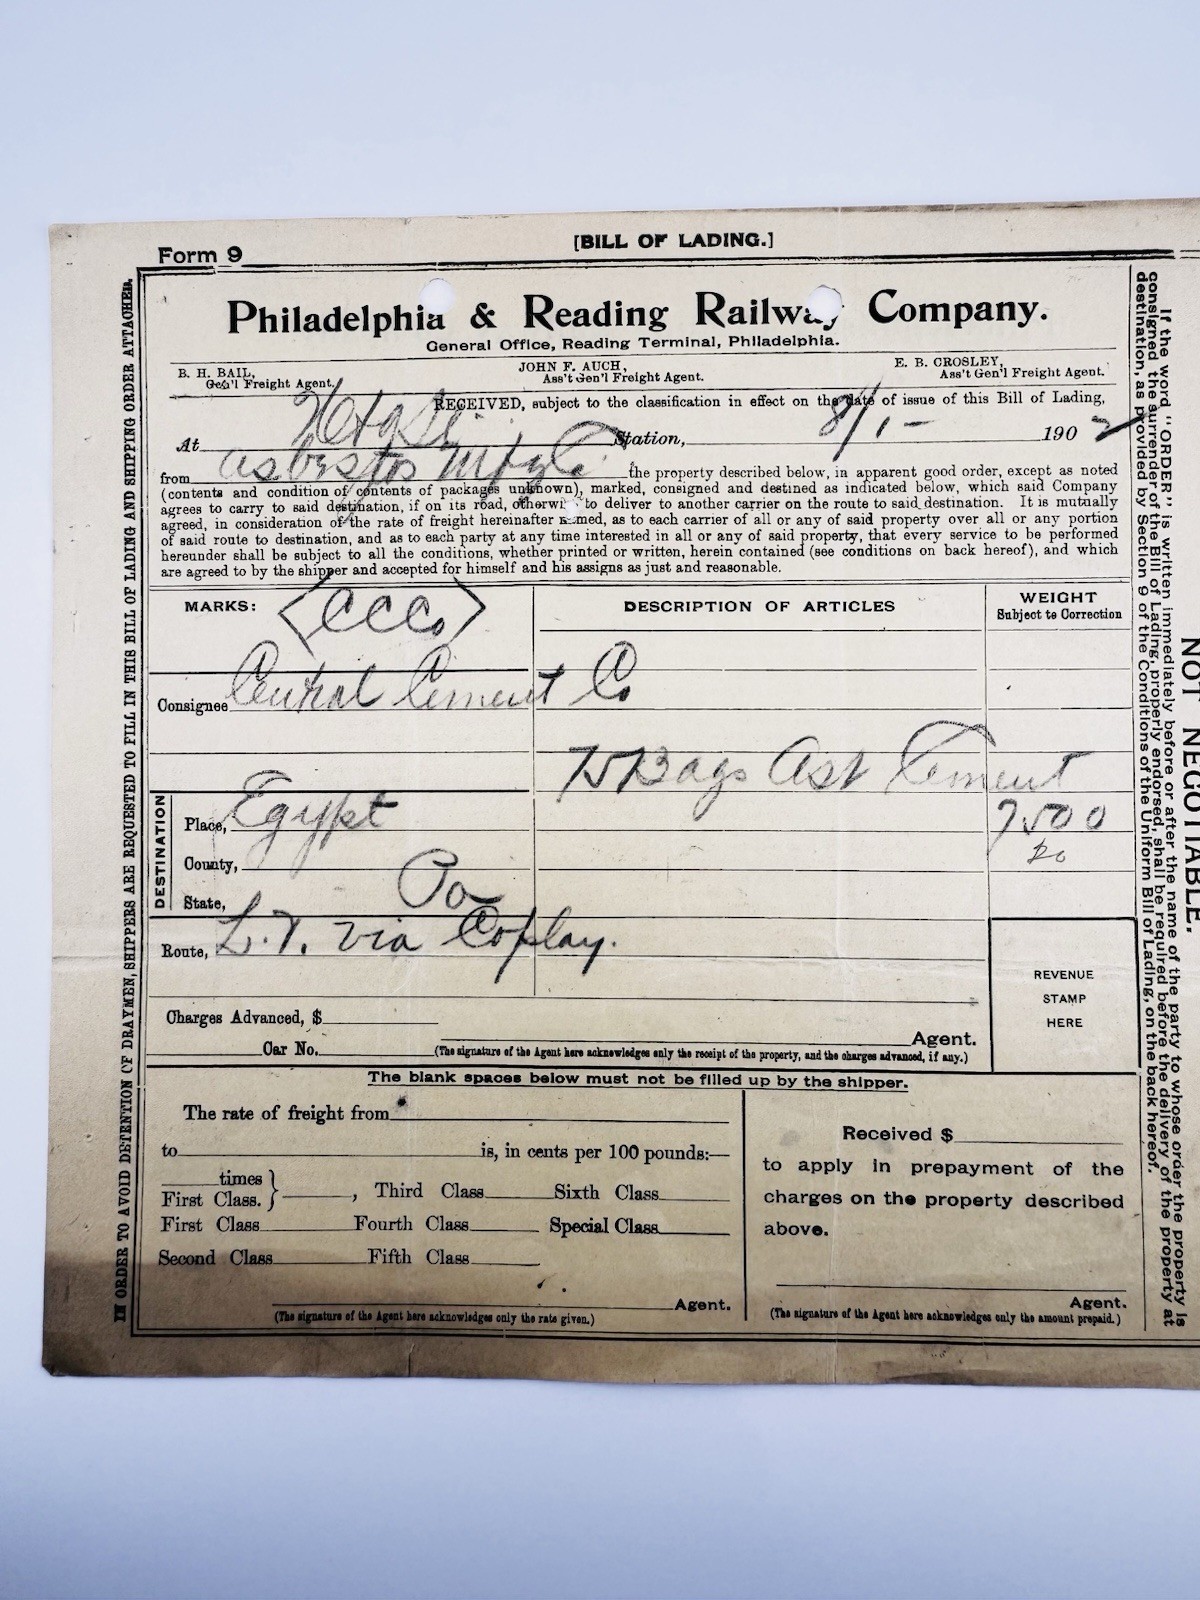 Form 9
[BILL OF LADING.]
Philadelphia & Reading Railway Company.
General Office, Reading Terminal, Philadelphia.
B. H. BAIL,
Gen'l Freight Agent.
JOHN F. AUCH,
Ass't Gen'l Freight Agent.
E. B. CROSLEY,
Ass't Gen'l Freight Agent.
RECEIVED, subject to the classification in effect on the date of issue of this Bill of Lading,
At Station, 8/1- 1902
from Asbestos Mfg Co. the property described below, in apparent good order, except as noted
(contents and condition of contents of packages unknown), marked, consigned and destined as indicated below, which said Company
agrees to carry to said destination, if on its road, otherwise to deliver to another carrier on the route to said destination. It is mutually
agreed, in consideration of the rate of freight hereinafter named, as to each carrier of all or any of said property over all or any portion
of said route to destination, and as to each party at any time interested in all or any of said property, that every service to be performed
hereunder shall be subject to all the conditions, whether printed or written, herein contained (see conditions on back hereof), and which
are agreed to by the shipper and accepted for himself and his assigns as just and reasonable.
MARKS: <CCCo>
DESCRIPTION OF ARTICLES
WEIGHT
Subject to Correction
Consignee Central Cement Co
75 Bags Asb Cement
7500
DESTINATION
Place, Egypt
County,
State, Pa
Route, L.V. via Coplay.
REVENUE
STAMP
HERE
Charges Advanced, $
Agent.
Car No.
(The signature of the Agent here acknowledges only the receipt of the property, and the charges advanced, if any.)
The blank spaces below must not be filled up by the shipper.
The rate of freight from
to is, in cents per 100 pounds:—
times
First Class. } , Third Class Sixth Class
First Class Fourth Class Special Class
Second Class Fifth Class
Agent.
(The signature of the Agent here acknowledges only the rate given.)
Received $
to apply in prepayment of the
charges on the property described
above.
Agent.
(The signature of the Agent here acknowledges only the amount prepaid.)
IN ORDER TO AVOID DETENTION OF DRAYMEN, SHIPPERS ARE REQUESTED TO FILL IN THIS BILL OF LADING AND SHIPPING ORDER ATTACHED.
NOT NEGOTIABLE.
If the word "ORDER" is written immediately before or after the name of the party to whose order the property is
consigned the surrender of the Bill of Lading, properly endorsed, shall be required before the delivery of the property at
destination, as provided by Section 9 of the Conditions of the Uniform Bill of Lading, on the back hereof.